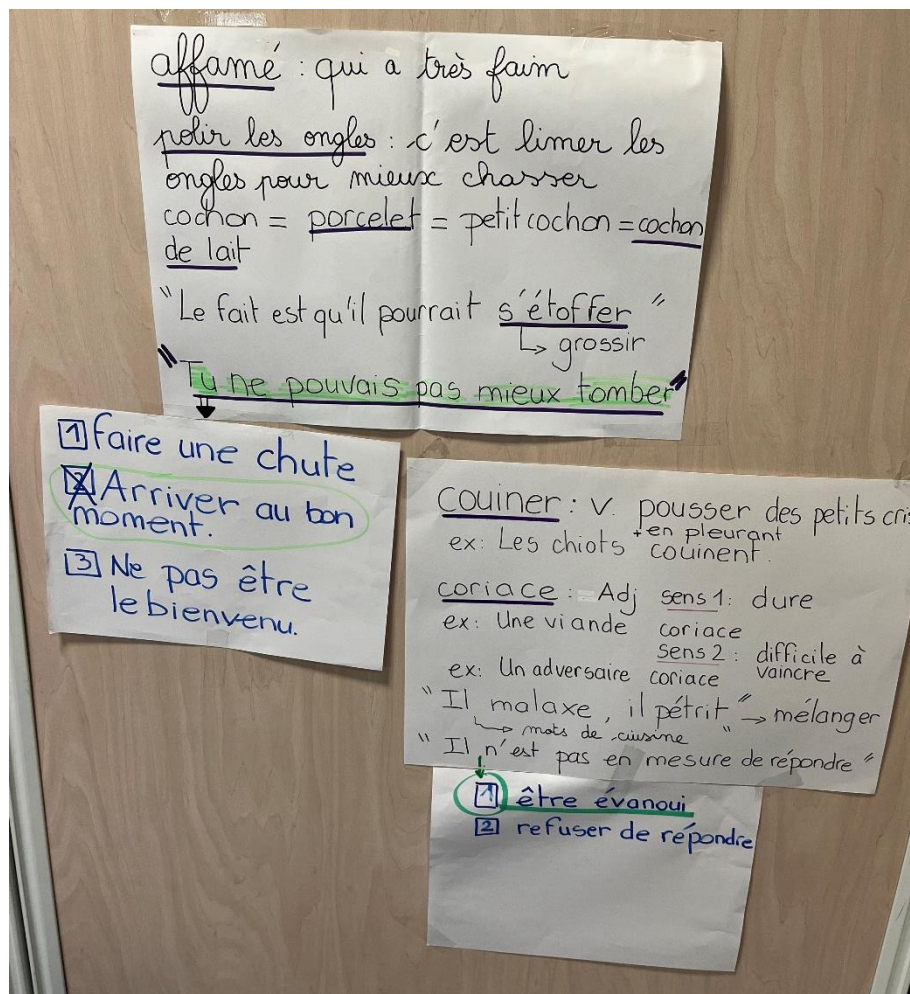 affamé : qui a très faim
polir les ongles : c'est limer les
ongles pour mieux chasser
cochon = porcelet = petit cochon = cochon
de lait
"Le fait est qu'il pourrait s'étoffer"
↳ grossir
"Tu ne pouvais pas mieux tomber"
1 faire une chute
2 Arriver au bon
moment.
3 Ne pas être
le bienvenu.
couiner : v. pousser des petits cris
+ en pleurant
ex: Les chiots couinent.
coriace : Adj sens 1: dure
ex: Une viande coriace
sens 2 : difficile à
vaincre
ex: Un adversaire coriace
"Il malaxe, il pétrit" → mélanger
↳ mots de cuisine
"Il n'est pas en mesure de répondre"
1 être évanoui
2 refuser de répondre